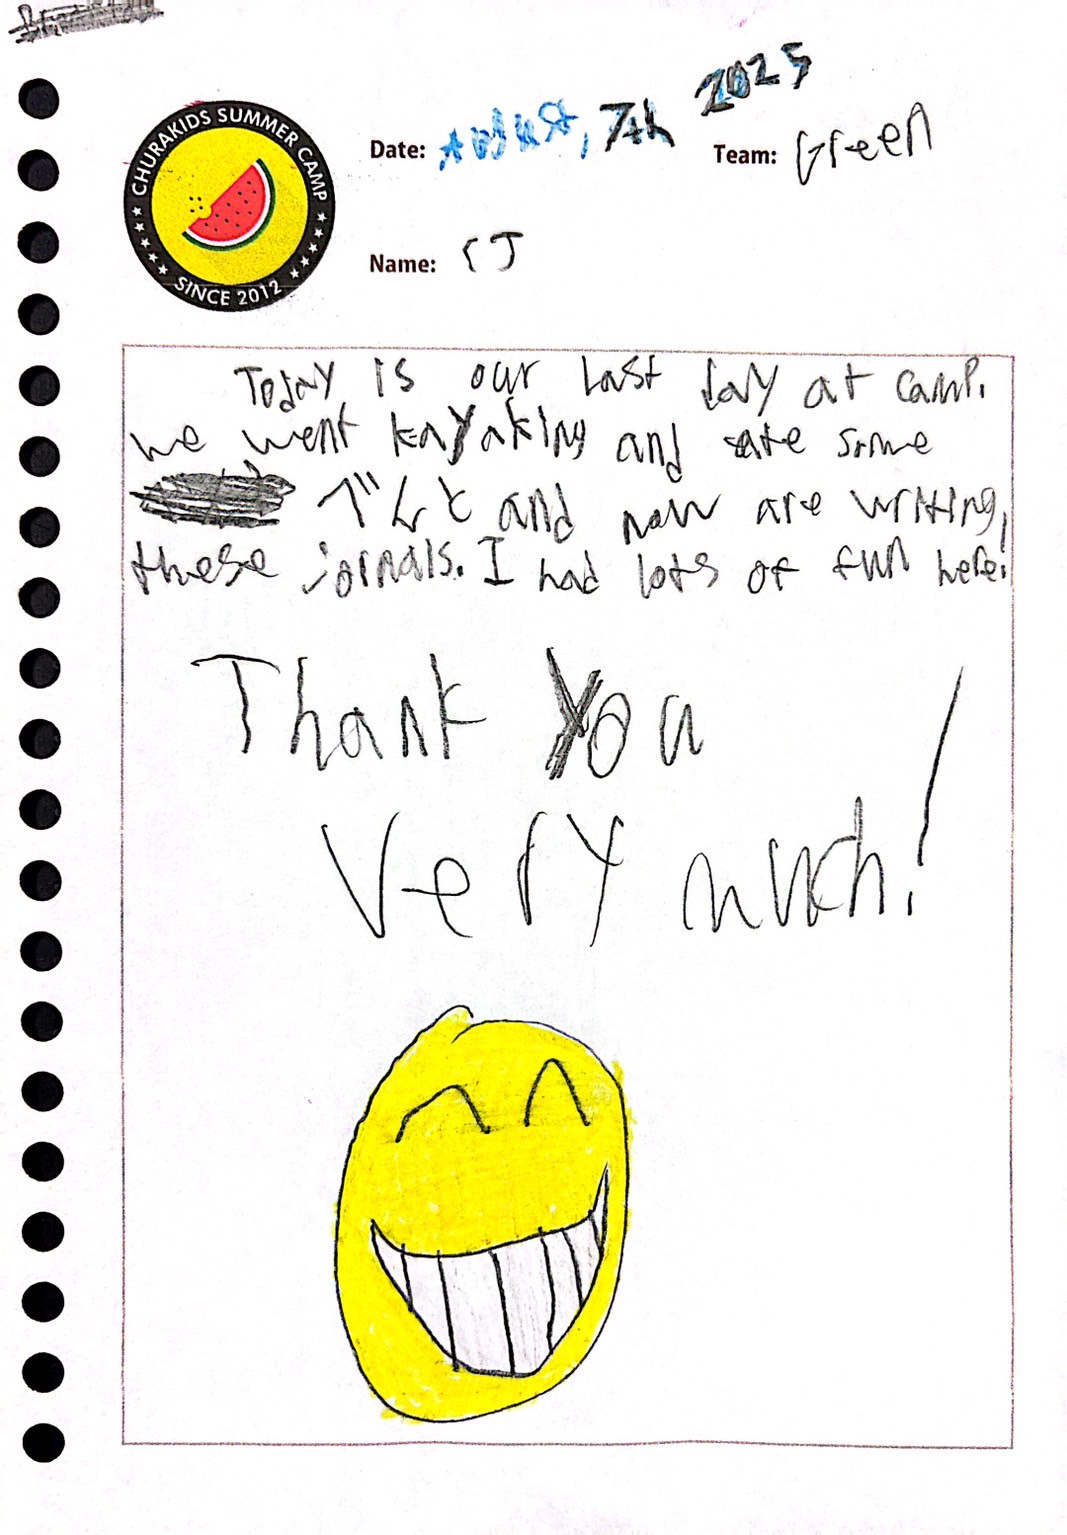 CHURAKIDS SUMMER CAMP
SINCE 2012
Date: August, 7th 2025
Team: Green
Name: rJ
Today is our last day at camp.
we went kayaking and ate some
べんと and now are writing,
these jornals. I had lots of fun here!
Thank You
Very much!